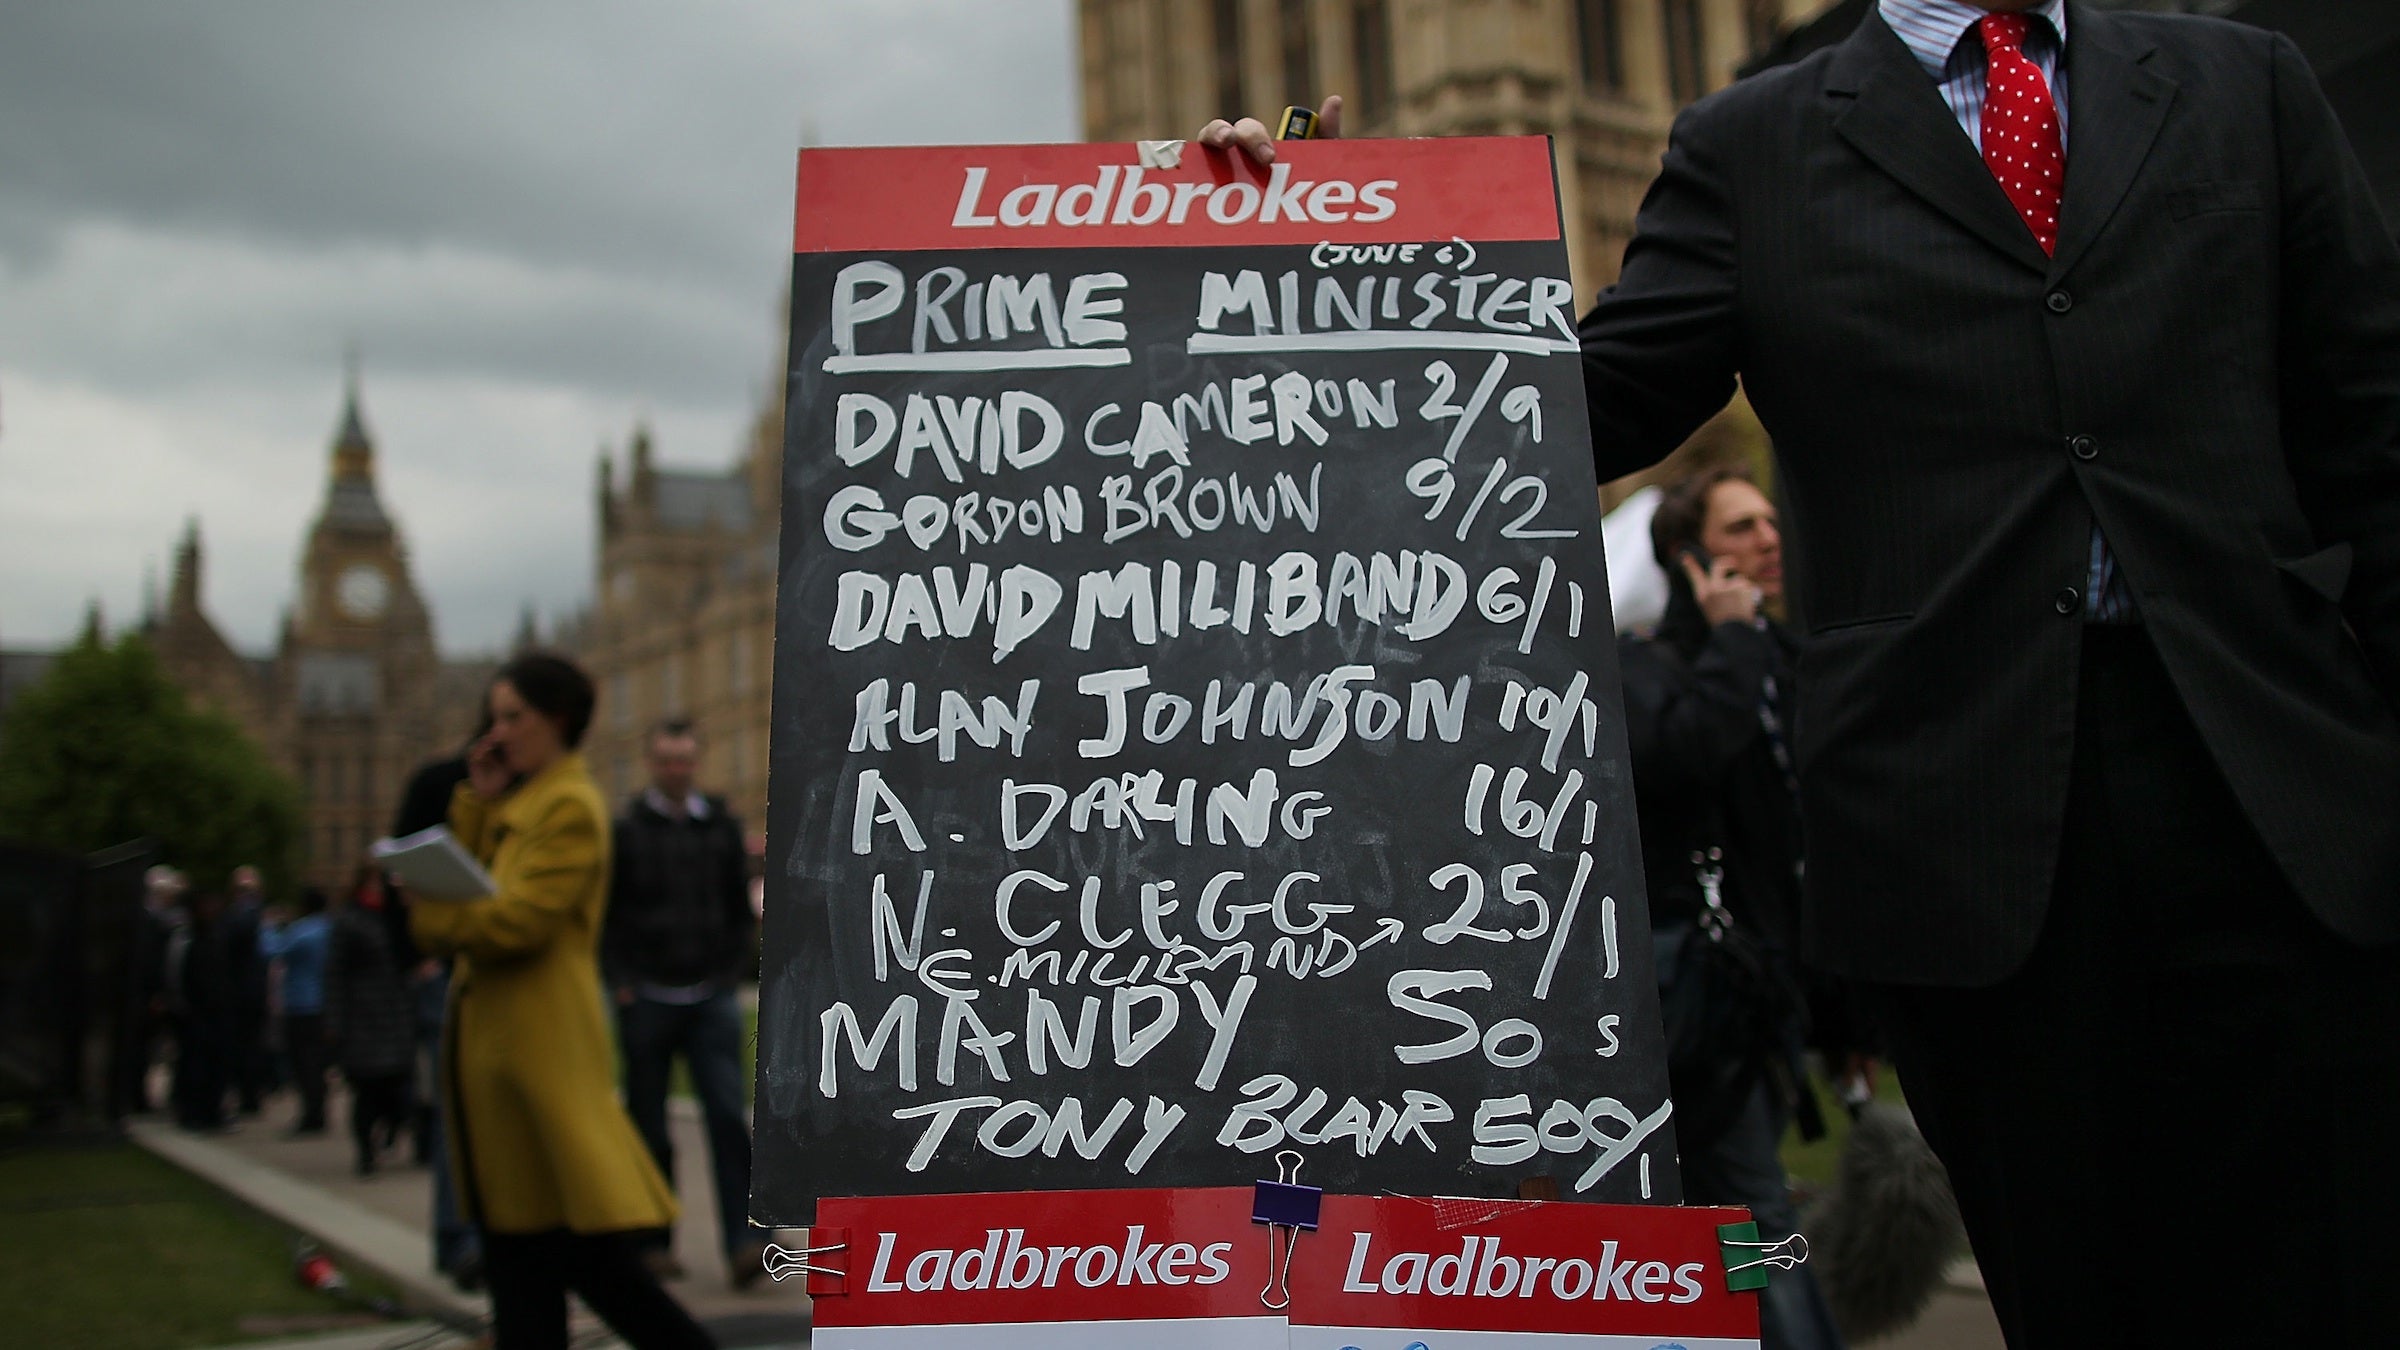 Ladbrokes
(JUNE 6)
PRIME MINISTER
DAVID CAMERON 2/9
GORDON BROWN 9/2
DAVID MILIBAND 6/1
ALAN JOHNSON 10/1
A. DARLING 16/1
N. CLEGG 25/1
E. MILIBAND →
MANDY 50 s
TONY BLAIR 500/1
Ladbrokes Ladbrokes